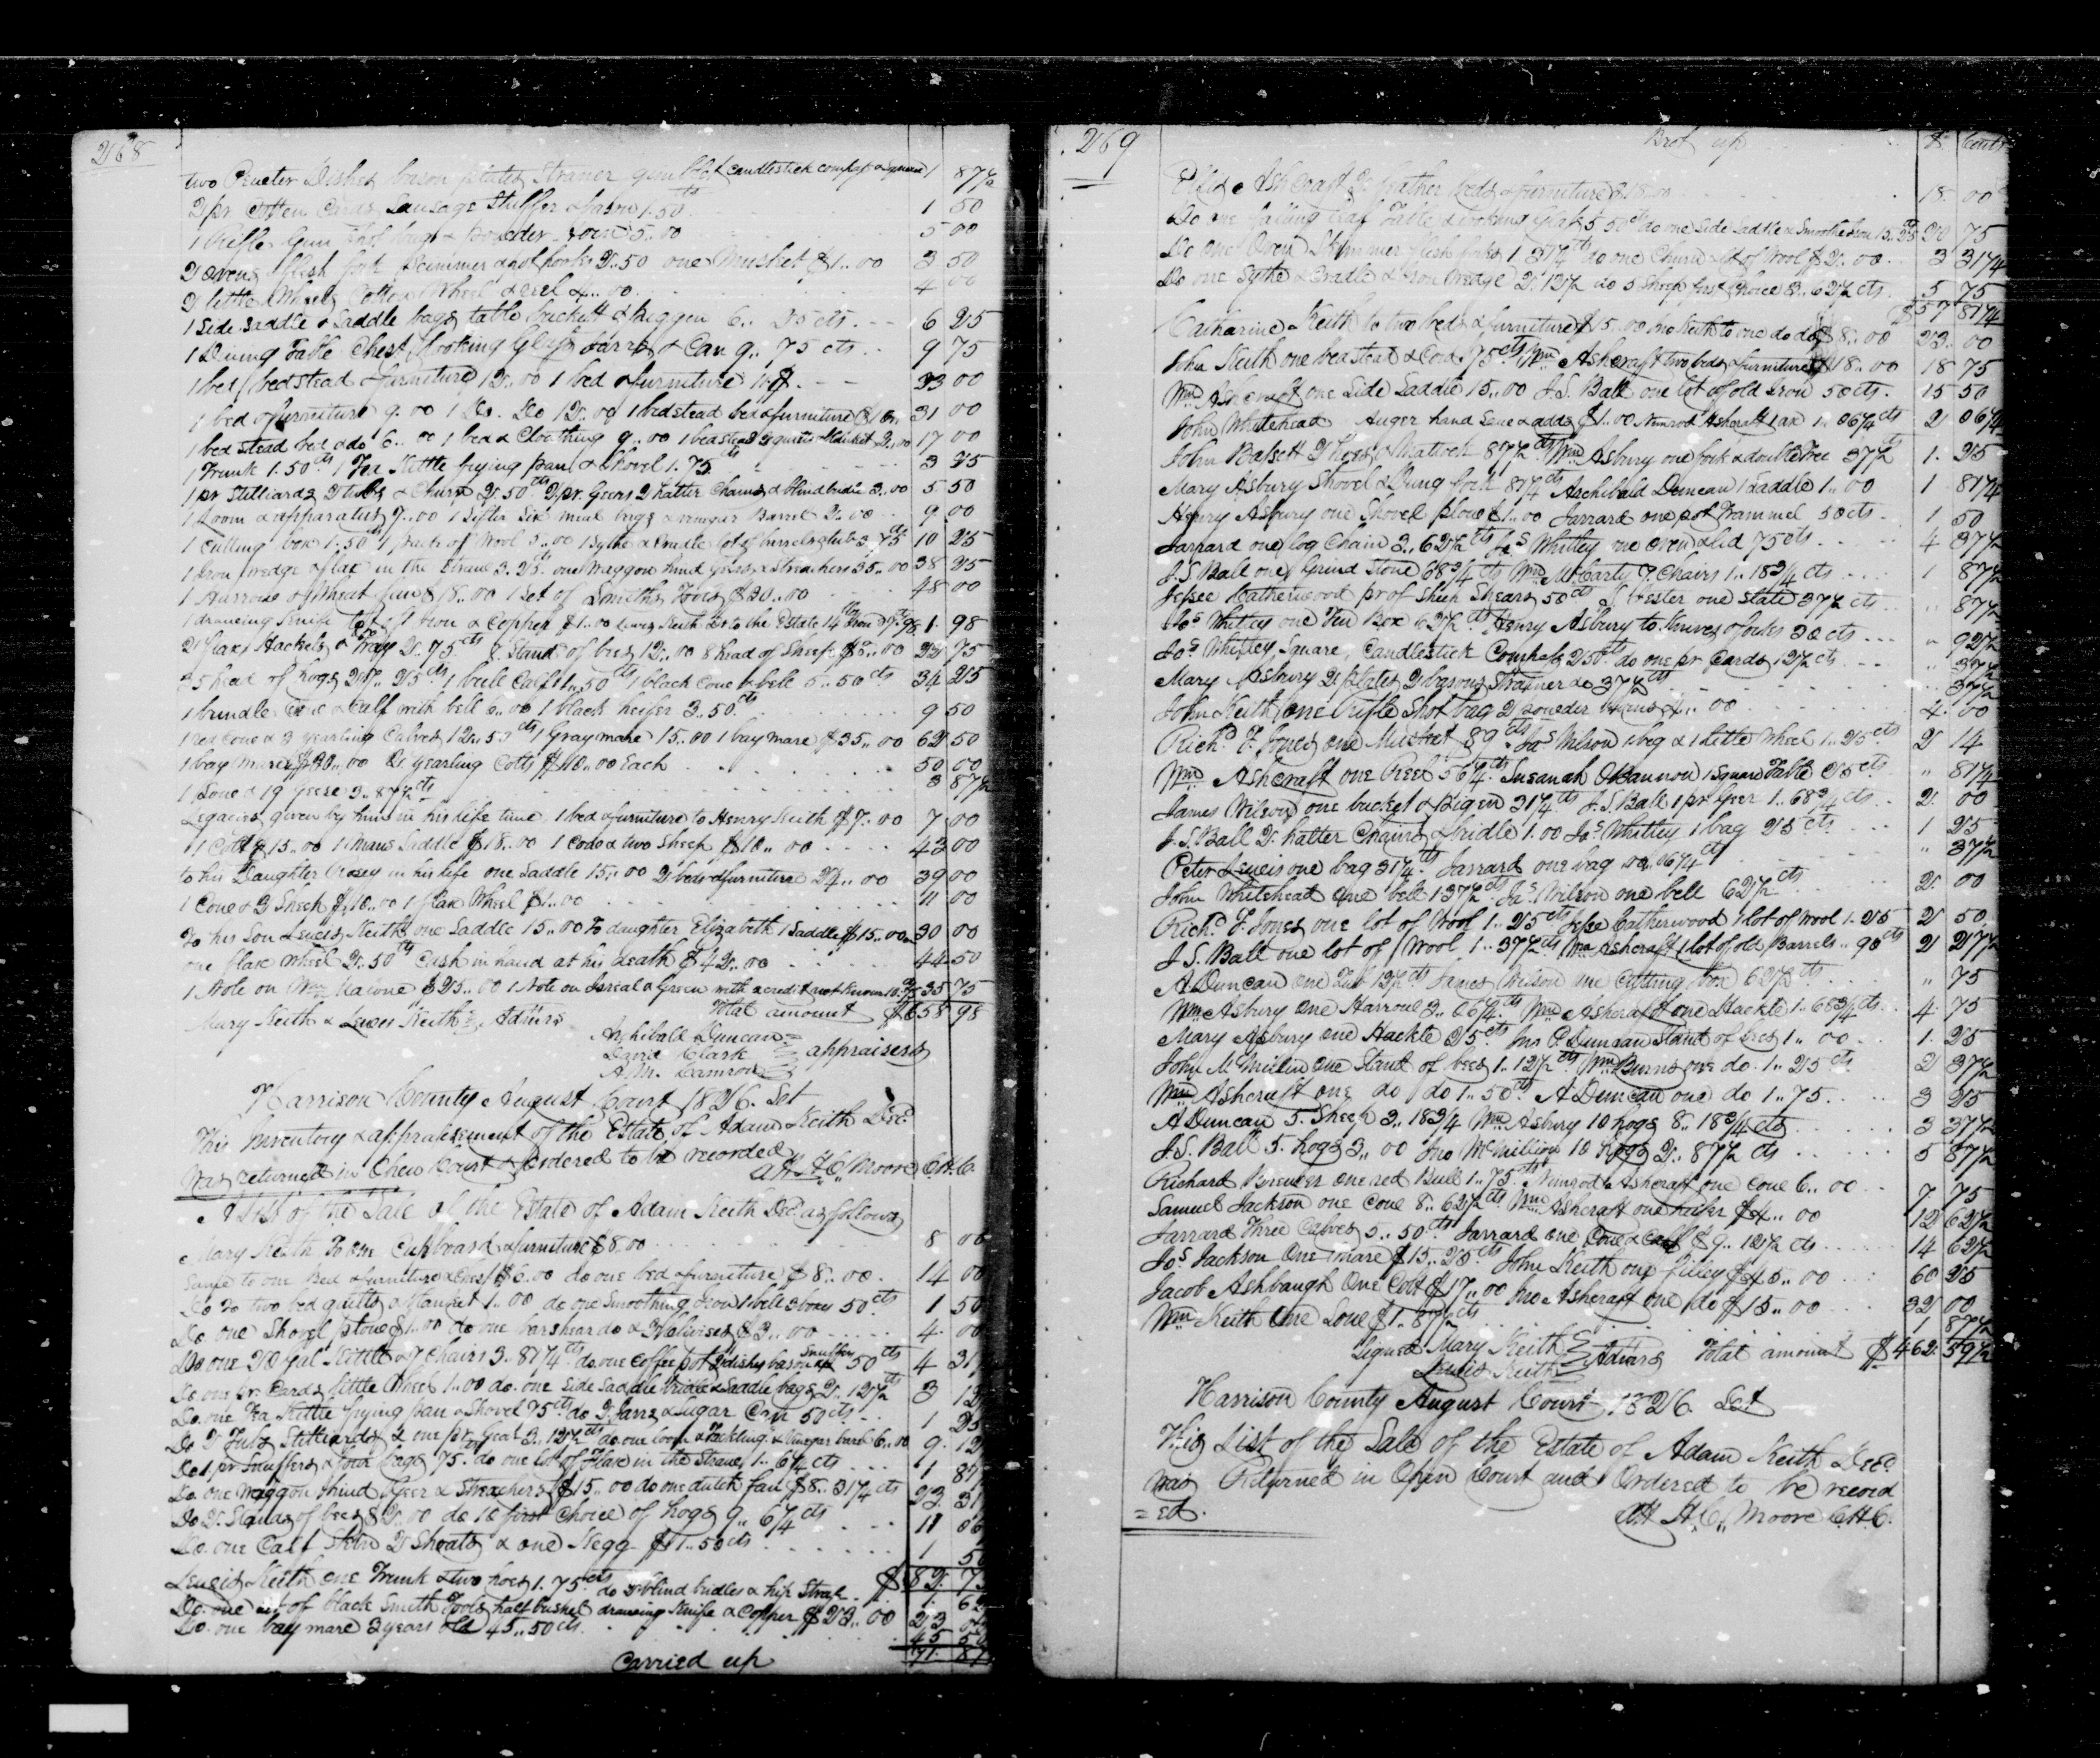 268
two Pewter Dishes bason plates Straner candlestick compass & square 1 87½
2 pr. Cotten Cards Sausage Stuffer & 1.50cts 1 50
1 Rifle Gun Shot bag & Powder 5..00 5 00
2 ovens flesh fork skimmer & pot hooks 2..50 one Musket $1..00 3 50
2 little Wheels Cotton Wheel & reel 4..00 4 00
1 Side Saddle & Saddle bags table buckett & piggen 6.. 25 cts. 6 25
1 Dining Table Chest Looking Glass Jarrs & Can 9.. 75 cts 9 75
1 bed bedstead & furniture 12..00 1 bed & furniture 33 00
1 bed & furniture 9.00 1 Do. Do 12..00 1 bedstead bed & furniture 31 00
1 bed stead bed & do 6..00 1 bed & Cloathing 9..00 1 bedstead 2 quilts & blanket 2..00 17 00
1 Trunk 1.50cts 1 Tea Kittle frying pan & Shovel 1.75cts 3 25
1 pr Stilliards 2 tubs & Churn 2.50cts 2 pr. Geers 2 halter Chains & blind bridle 3..00 5 50
1 Loom & apparatus 7..00 1 Sifter Six meal bags & vinegar Barrel 2..00 9 00
1 Cutting box 1.50cts 1 pack of Wool 3..00 1 Sythe & Cradle lot of barrels & tub 3.75cts 10 25
1 Iron wedge & flax in the Straw 3.25cts. one Waggon hind gears & Streachers 35..00 38 25
1 Harrow & Wheat fan $18..00 1 Set of Smiths Tools $30..00 48 00
1 drawing Knife lot of old Iron & Copper $1.00 Lewis Keith Dr to the Estate 98 1. 98
2 flax Hackels & Tray 2.75cts 7 Stands of bees 12..00 8 head of Sheep $8..00 22 75
25 head of hogs 27..25cts 1 bull Calf 1..50cts 1 black Cow & bell 5..50cts 34 25
1 brindle Cow & Calf with bell 6..00 1 black heifer 3..50cts. 9 50
1 red Cow & 3 yearling Calves 12..50cts 1 Gray mare 15..00 1 bay mare $35..00 62 50
1 bay mare $30..00 2 yearling Colts $10..00 Each 50 00
1 Sow & 19 Geese 3..87½cts 3 87½
Legacies given by him in his life time 1 bed & furniture to Henry Keith $7..00 7 00
1 Colt $15..00 1 Mans Saddle $18..00 1 Cow & two Sheep $10..00 43 00
to his Daughter Rosey in his life one Saddle 15..00 2 beds & furniture 24..00 39 00
1 Cow & 3 Sheep $10..00 1 flax Wheel $1..00 11 00
To his Son Lewis Keith one Saddle 15..00 To daughter Elizabeth 1 Saddle $15..00 30 00
one flax Wheel 2.50cts Cash in hand at his death $42..00 44.50
1 Note on Wm Malone $25..00 1 Note on Isreal & Green with a credit not known 10.75 35 75
Total amount $658 98
Mary Keith & Lewis Keith Admrs
Archibald Duncan
David Clark appraisers
A.M. Camron
Harrison County August Court 1826. Sct
This Inventory & appraisement of the Estate of Adam Keith Decd.
was returned in Open Court & Ordered to be recorded
Att H.C. Moore C.H.C.
A List of the Sale of the Estate of Adam Keith Decd as follows
Mary Keith To one Cupboard & furniture $8.00 8 00
Same to one Bed & furniture & Chest $6.00 do one bed & furniture $8..00. 14 00
Do to two bed quilts & blanket 1..00 do one Smoothing Iron 1 bell 3 boxes 50cts 1 50
Do one Shovel plow $1..00 do one barshear do & 3 $3..00 4. 00
Do one 20 Gal Kittle & 7 Chairs 3..81¼cts. do. one Coffee pot 2 dishes bason Snuffers 50cts 4 31
Do one pr. Cards little Wheel 1..00 do. one Side Saddle bridle & Saddle bags 2.12½cts 3 12
Do. one Tea Kittle frying pan & Shovel 75cts do 2 Jarrs & Sugar Can 50 cts 1 25
Do 2 Tubs Stilliards & one pr Geer 3..12½cts do one loom & Tackling & Vinegar barrel 6..00 9. 12
Do 1 pr Snuffers & four bags 75cts. do one lot of Flax in the Straw 1.. 6¼ cts 1 8
Do. one Waggon & hind Geer & Streachers $15..00 do one dutch fan $8..31¼ cts 23. 31
Do 2. Stands of bees $2..00 do 10 first Choice of hogs 9.. 6¼ cts 11 06
Do. one Calf Skin 2 Shoats & one Kegg $1..50cts 1 50
$82. 7
Lewis Keith one Trunk & two hoes 1.75cts do 2 blind bridles & hip Strap 1. 62
Do. one set of black Smith Tools half bushel drawing Knife & Copper $23..00 23
Do. one bay mare 3 years old 45..50cts. 45 50
71. 87
Carried up
269
Brot up $ Cents
Ashcraft 2 feather beds & furniture $18.00 18. 00
Do one falling leaf Table & looking Glass 5.50cts do one Side Saddle & Smoothe Iron 15..25 20 75
Do One Oven Skimmer flesh forks 1.31¼cts do one Churn & lot of Wool $2..00 3 31¼
Do one Sythe & Cradle & Iron Wedge 2.12½ do 5 Sheep first Choice 3..62½ cts. 5 75
$57 81¼
Catharine Keith to two beds & furniture $15..00 Jno Keith to one do do $8..00 23. 00
John Keith one bed stead & Cord .75cts Wm Ashcraft two beds & furniture $18..00 18 75
Wm Ashcraft one Side Saddle 15..00 J.S. Ball one lot of old Iron 50 cts. 15 50
John Whitehead Auger hand Saw & adds $1.00 Nimrod Ashcraft 1 ax 1..06¼cts 2 06¼
John Bassett 2 Hoes & Mattock 87½cts Wm Asbury one fork & double Tree 37½ 1. 25
Mary Asbury Shovel & Dung fork 81¼cts Archibald Duncan 1 Saddle 1..00 1 81¼
Henry Asbury one Shovel plow $1..00 Jarrard one pot Trammel 50 cts. 1 50
Jarrard one log Chain 3..62½cts Jas Whitley one oven & lid 75cts 4 37½
J.S. Ball one Grind Stone 68¾ cts Wm McCarty 7. Chairs 1..18¾ cts 1 87½
Jessee Catherwood pr of Sheep Shears 50cts J. Vester one slate 37½ cts .. 87½
Jos Whitley one Tin Box 62½cts Henry Asbury to Knives & forks 30 cts .. 92½
Jos Whitley Square, Candlestick Compass 25cts. do one pr Cards 12½ cts .. 37½
Mary Asbury 2 plates 2 basons Strayner do 37½cts .. 37½
John Keith one Rifle Shot bag 2 powder horns 4..00 4. 00
Richd. F. Jones one Musket 89cts. Jas Wilson 1 keg & 1 little Wheel 1..25cts 2 14
Wm Ashcraft one Reel 56¼. Susanah OBannon 1 Square Table 25cts .. 81¼
James Wilson one bucket & Pigen 31¼cts J.S. Ball 1 pr Geer 1..68¾ cts 2. 00
J.S. Ball 2. halter Chains & bridle 1.00 Jas Whitley 1 bag 25 cts 1 25
Peter Lewis one bag 31¼. Jarrard one bag 06¼cts .. 37½
John Whitehead One bell 1 37½cts. Jas. Wilson one bell 62½cts 2. 00
Richd. F. Jones one lot of Wool 1..25cts Jesse Catherwood 1 lot of Wool 1.25 2 50
J.S. Ball one lot of Wool 1..37½cts Wm Ashcraft 1 lot of old Barrels ..90cts 2 27½
A Duncan One Tub 12½cts James Wilson one Cutting box 62½cts .. 75
Wm. Asbury One Harrow 3..06¼cts Wm Ashcraft one Hackle 1..68¾cts 4. 75
Mary Asbury one Hackle 25cts Jno P. Duncan Stand of bees 1..00 1. 25
John McMillin One Stand of bees 1..12½cts Wm Burns one do. 1..25 cts 2 37½
Wm Ashcraft one do do 1..50cts. A Duncan one do 1..75 3 25
A Duncan 5. Sheep 3..18¾ Wm Asbury 10 hogs 8..18¾ cts 3 37½
J.S. Ball 5. hogs 3..00 Jno McMillion 10 Hogs 2..87½ cts 5 87½
Richard Brewer one red Bull 1..75cts Nimrod Ashcraft one Cow 6..00 7 75
Samuel Jackson one Cow 8..62½cts Wm Ashcraft one heifer $4..00 12 62½
Jarrard Three Calves 5..50cts Jarrard one Cow & Calf $9..12½ cts 14 62½
Jos Jackson One mare $15..25cts John Keith one filley $45..00 60 25
Jacob Ashbaugh One Colt $17..00 Jno Ashcraft one do $15..00 32 00
Wm Keith One Sow $1..87½cts 1 87½
Signed Mary Keith
Lewis Keith Admrs Total amount $462. 59½
Harrison County August Court 1826. Sct
This List of the Sale of the Estate of Adam Keith Decd.
was Returned in Open Court and Ordered to be record
=ed.
Att H.C. Moore C.H.C.